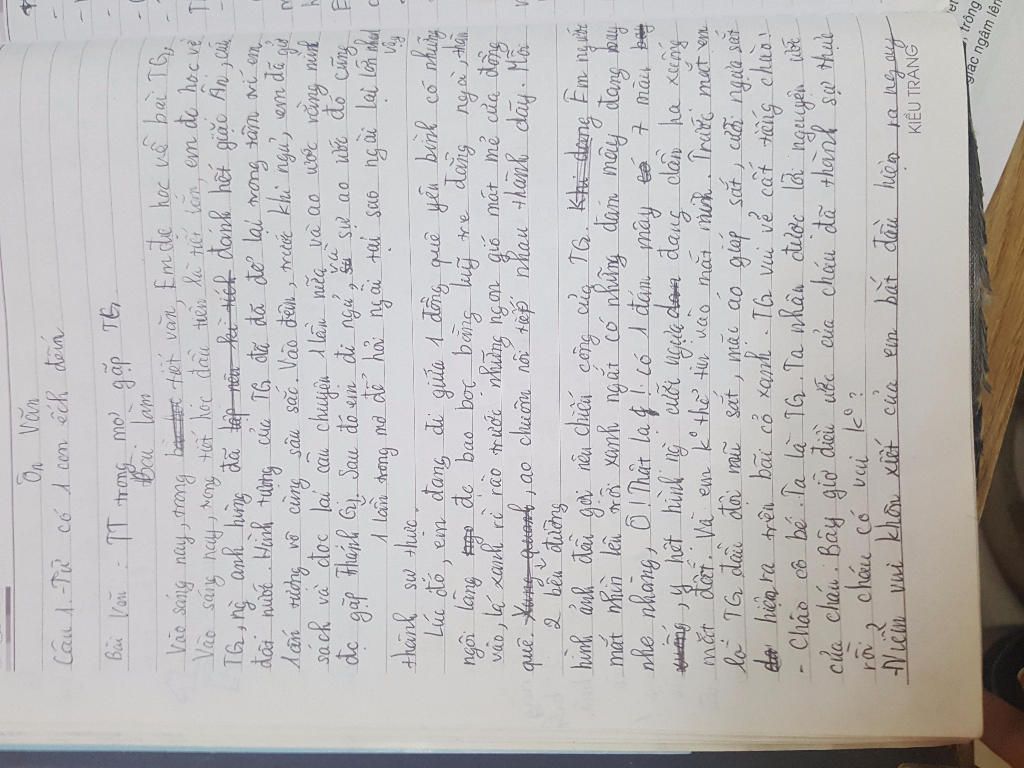 Ôn Văn
Câu 1. - Từ có 1 con ếch đến
Bài Văn: - TT trong mơ gặp TG
Bài làm
Vào sáng nay, trong tiết văn, Em đc học về bài TG,
Vào sáng nay, trong tiết học đầu tiên là tiết văn, em đc học về
TG, ng anh hùng đã đánh hết giặc Ân, cứu
đất nước. Hình tượng của TG đã để lại trong tâm trí em
1 ấn tượng vô cùng sâu sắc. Vào đêm, trước khi ngủ, em đã giở
sách và đọc lại câu chuyện 1 lần nữa và ao ước rằng mình
đc gặp Thánh G. Sau đó em đi ngủ, và sự ao ước đó cũng
1 lần trong mơ để hỏi ngài tại sao ngài lại lớn nhanh
vậy
thành sự thực.
Lúc đó, em đang đi giữa 1 đồng quê yên bình có những
ngôi làng đc bao bọc bằng luỹ tre đằng ngà, thân
vào, lá xanh rì rào trước những ngọn gió mát mẻ của đồng
quê. , ao chuôm nối tiếp nhau thành dãy. Mỗi
2 bên đường
hình ảnh đều gợi nên chiến công của TG. Em ngước
mắt nhìn lên trời xanh ngát có những đám mây đang bay
nhẹ nhàng, Ô! Thật lạ ! có 1 đám mây 7 màu
, y hệt hình ng cưỡi ngựa đang dần hạ xuống
mặt đất. Và em ko thể tin vào mắt mình. Trước mắt em
là TG, đầu đội mũ sắt, mặc áo giáp sắt, cưỡi ngựa sắt
hiện ra trên bãi cỏ xanh. TG vui vẻ cất tiếng chào!
- Chào cô bé. Ta là TG. Ta nhận được lời nguyện ước
của cháu. Bây giờ điều ước của cháu đã thành sự thực
rồi, cháu có vui ko?
- Niềm vui khôn xiết của em bắt đầu hiện ra ngay
KIỀU TRANG
giác, trông
giác ngậm lên